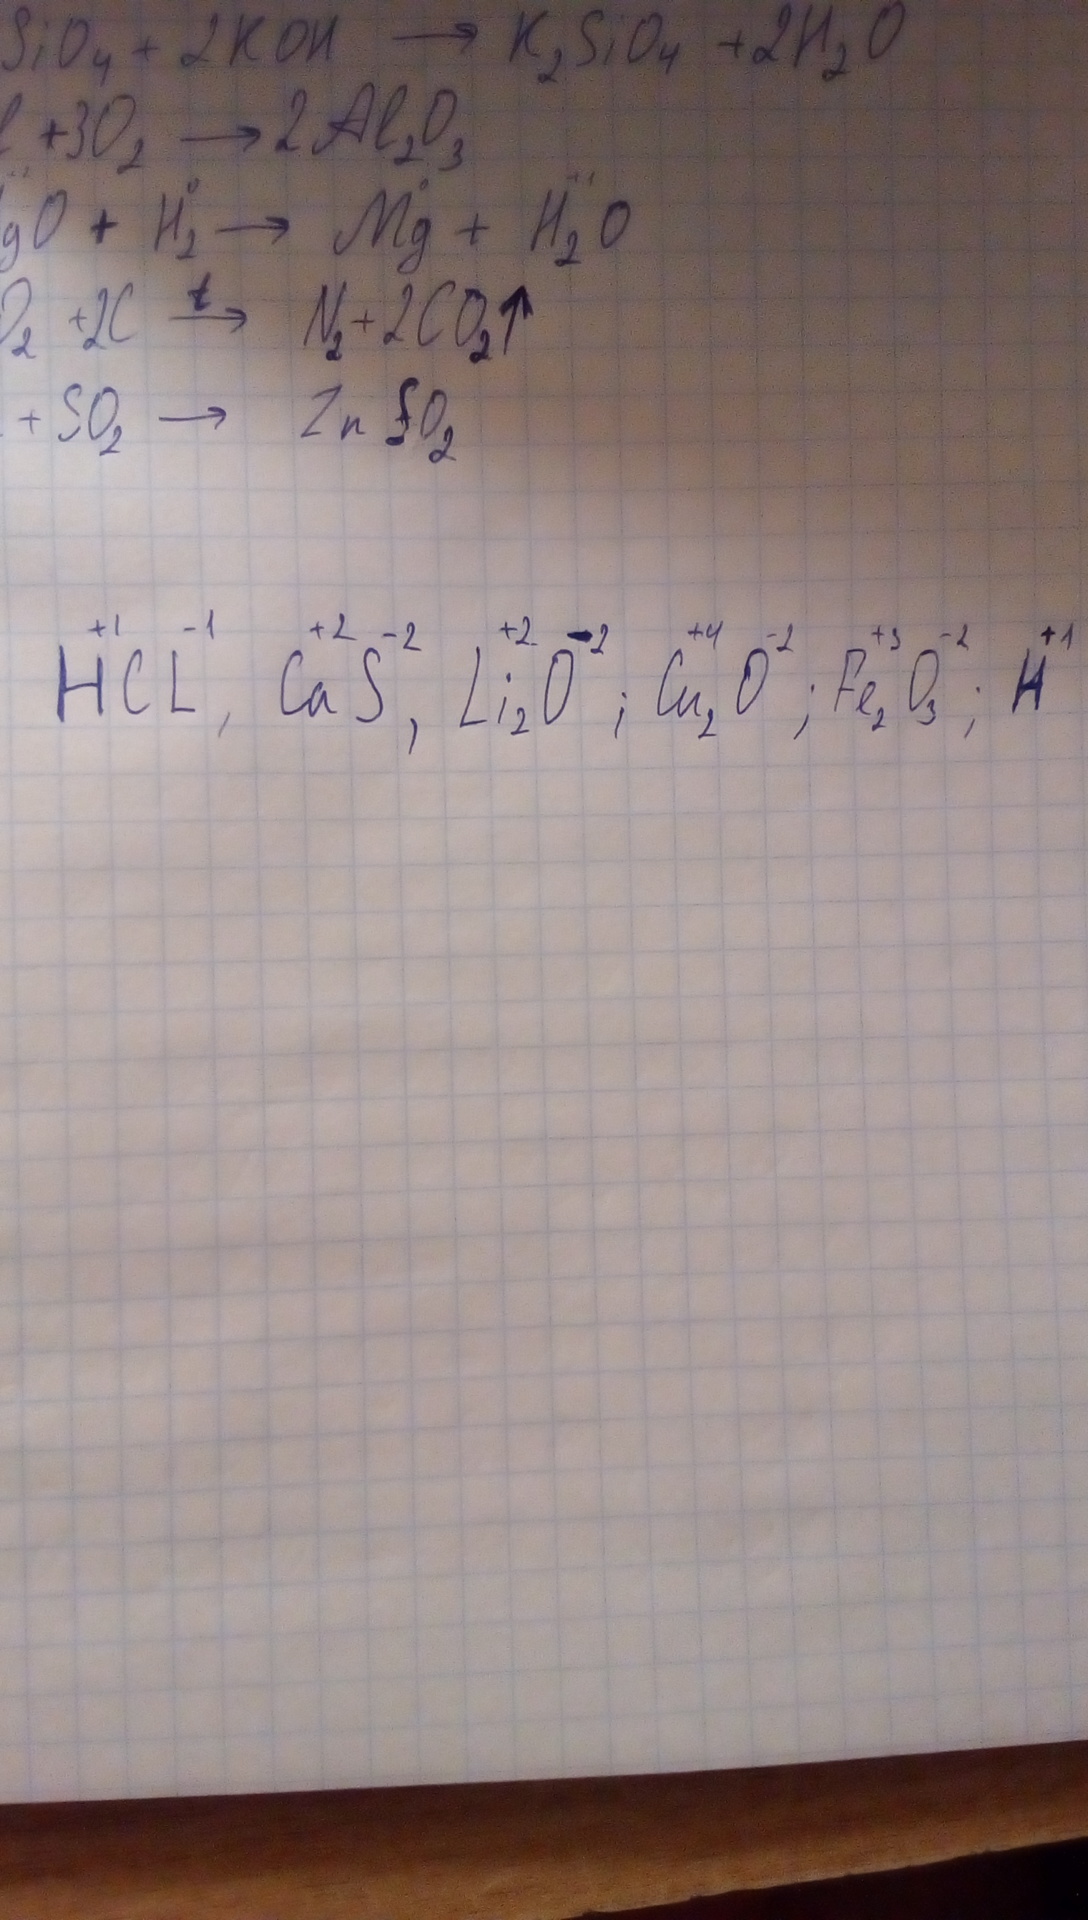 SiO₄ + 2KOH → K₂SiO₄ + 2H₂O
l + 3O₂ → 2Al₂O₃
gO + H₂⁰ → Mg⁰ + H₂⁺¹O
O₂ + 2C →ᵗ N₂ + 2CO₂↑
+ SO₂ → Zn SO₂
H⁺¹CL⁻¹, Ca⁺²S⁻², Li₂⁺²O⁻²; Cu₂⁺⁴O⁻²; Fe₂⁺³O₃⁻²; H⁺¹